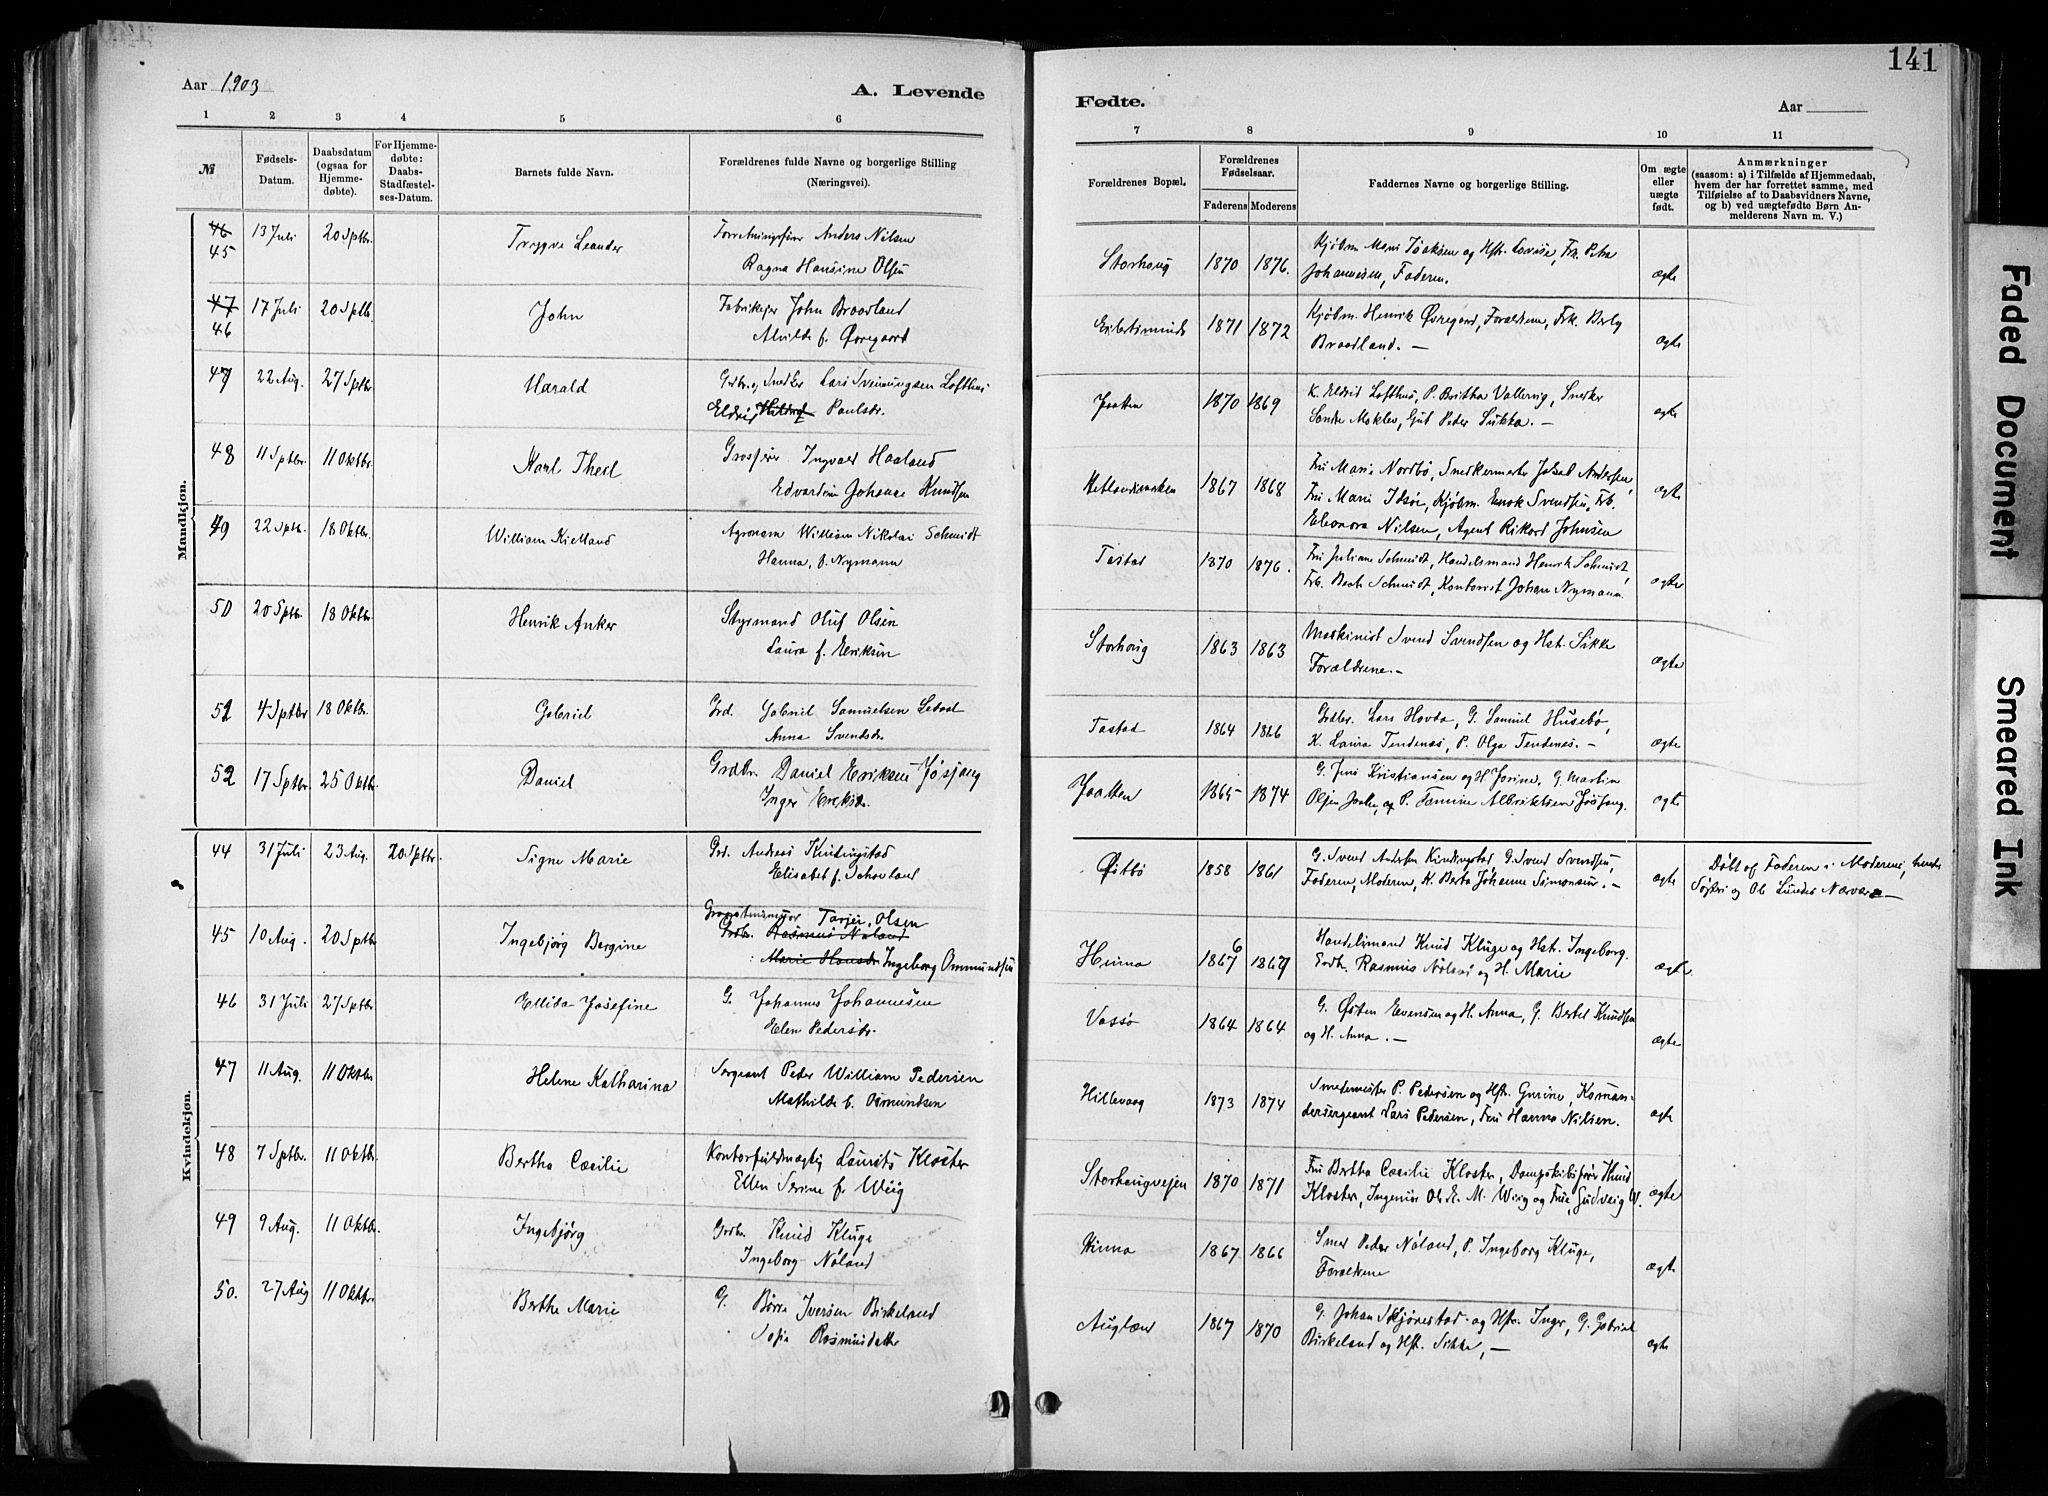 141
Aar 1903
A. Levende
Fødte.
Aar
1 2 3 4 5 6
7 8 9 10 11
№
Fødsels-Datum.
Daabsdatum (ogsaa for Hjemmedøbte).
For Hjemmedøbte: Daabs-Stadfæstelses-Datum.
Barnets fulde Navn.
Forældrenes fulde Navne og borgerlige Stilling (Næringsvei).
Forældrenes Bopæl.
Forældrenes Fødselsaar.
Faderens Moderens
Faddernes Navne og borgerlige Stilling.
Om ægte eller uægte født.
Anmærkninger
(saasom: a) i Tilfælde af Hjemmedaab,
hvem der har forrettet samme, med
Tilføielse af to Daabsvidners Navne,
og b) ved uægtefødte Børn An-
melderens Navn m. V.)
Mandkjøn.
46 45 13 Juli 20 Sptbr. Trygve Leander Forretningsfører Anders Nilsen
Ragna Hansine Olsen
Storhoug 1870 1876. Kjøbm. Mons Isaksen og Hst. Lovise, Frk. Petra
Johannesen, Faderen. ægte
47 46 17 Juli 20 Sptb. John Fabrikeier John Braadland
Alvilde f. Øvregaard
1871 1872 Kjøbm. Henrik Øvregaard, Forældrene, Frk. Berly
Braadland. — ægte
47 22 Aug. 27 Sptbr Harald Grdbr. og Snedker Lars Sveinungsen Lofthus
Eldrid Paulsdr.
Jaatten 1870 1869 K. Eldrid Lofthus, P. Britha Vallevig, Snerker
Sandre Moklev, Gut Peder Sukka. — ægte
48 11 Sptbr. 11 Oktbr. Karl Thed Grosserer Ingvald Haaland
Edvardine Johanne Knudsen
Hetlandsmarken 1867 1868 Fru Marie Nordbø, Snedkermester Jakob Andersen,
Fru Marie Idsøe, Kjøbm. Enok Svendsen, Frk.
Eleonora Nilsen, Agent Rikard Johnsen ægte
49 22 Sptb. 18 Oktbr. William Kielland Agronom William Nikolai Schmidt
Hanna, f. Nymann
Tastad 1870 1876. Fru Juliane Schmidt, Handelsmand Henrik Schmidt,
Frk. Berth Schmidt, Kontorist Johan Nymann. ægte
50 20 Sptbr. 18 Oktbr. Henrik Anker Styrmand Oluf Olsen
Laura f. Eriksen
Storhoug 1863 1863 Maskinist Svend Svendsen og Hst. Sikke
Forældrene. — ægte
51 4 Sptbr 18 Oktbr. Gabriel Grd. Gabriel Samuelsen
Anna Svendsdr.
Tastad 1864 1866 Grdbr. Lars Hovda, G. Samuel Husebø,
K. Laura Tendenes, P. Olga Tendenes. — ægte
52 17 Sptbr. 25 Oktbr. Daniel Grdbr. Daniel Eriksen Jøsjang
Inger Eriksdr.
Jaatten 1865 1874 G. Jens Kristiansen og H. Jorine, G. Martin
Olsen Jaatten, og P. Tomine Albriktsen Jøsjang. ægte
Kvindekjøn.
44 31 Juli 23 Aug. 20 Sptbr. Signe Marie Grd. Andreas Kindingstad
Elisabet f. Schouland
Østbø 1858 1861 G. Svend Andersen Kindingstad G. Svend Svendsen,
Faderen, Moderen, K. Berta Johanne Simonsen. — ægte Døbt af Faderen i Moderens, hendes
Søsters og Ole Lundes Nærvær —
45 10 Aug. 20 Sptbr Ingebjørg Bergine Tarjei Olsen
Grdbr. Rasmus Nåland
Marie Hansdr Ingeborg Ommundsen
Hinna 1867 6 1869 Handelsmand Knud Kluge og Hst. Ingeborg.
Grdb. Rasmus Nåland og H. Marie ægte.
46 31 Juli 27 Sptbr Ellida Josefine G. Johannes Johannesen
Elen Pedersdr.
Vassø 1864 1864 G. Østen Evensen og H. Anna, G. Bertel Knudsen
og H. Anna. — ægte
47 11 Aug. 11 Oktbr Helene Katharina Sergeant Peder William Pedersen
Mathilde f. Osmundsen
Hillevaag 1873 1874 Smedemester P. Pedersen og Hst. Gurine, Koman-
dersergeant Lars Pedersen, Fru Hanna Nilsen. ægte
48 7 Sptbr. 11 Oktbr. Bertha Cæcilie Kontorfuldmægtig Laurits Kloster
Ellen Serine f. Wiig
Storhougvejen 1870 1871 Fru Bertha Cæcilie Kloster, Dampskibsfører Knud
Kloster, Ingeniør Ole E. M. Wiig og Frue, Gudveig W. ægte
49 9 Aug. 11 Oktbr. Ingebjørg Grdbr. Knud Kluge
Ingeborg Nåland
Hinna 1867 1866 Smed Peder Nåland, P. Ingeborg Kluge,
Forældrene ægte
50. 27 Aug 11 Oktbr. Berthe Marie G. Børre Iversen Birkeland
Sofia Rasmusdatter
Auglen 1867 1870 G. Johan Skjørestad og Hst. Inger, G. Gabriel
Birkeland og Hst. Sikke, — ægte
Faded Document
Smeared Ink